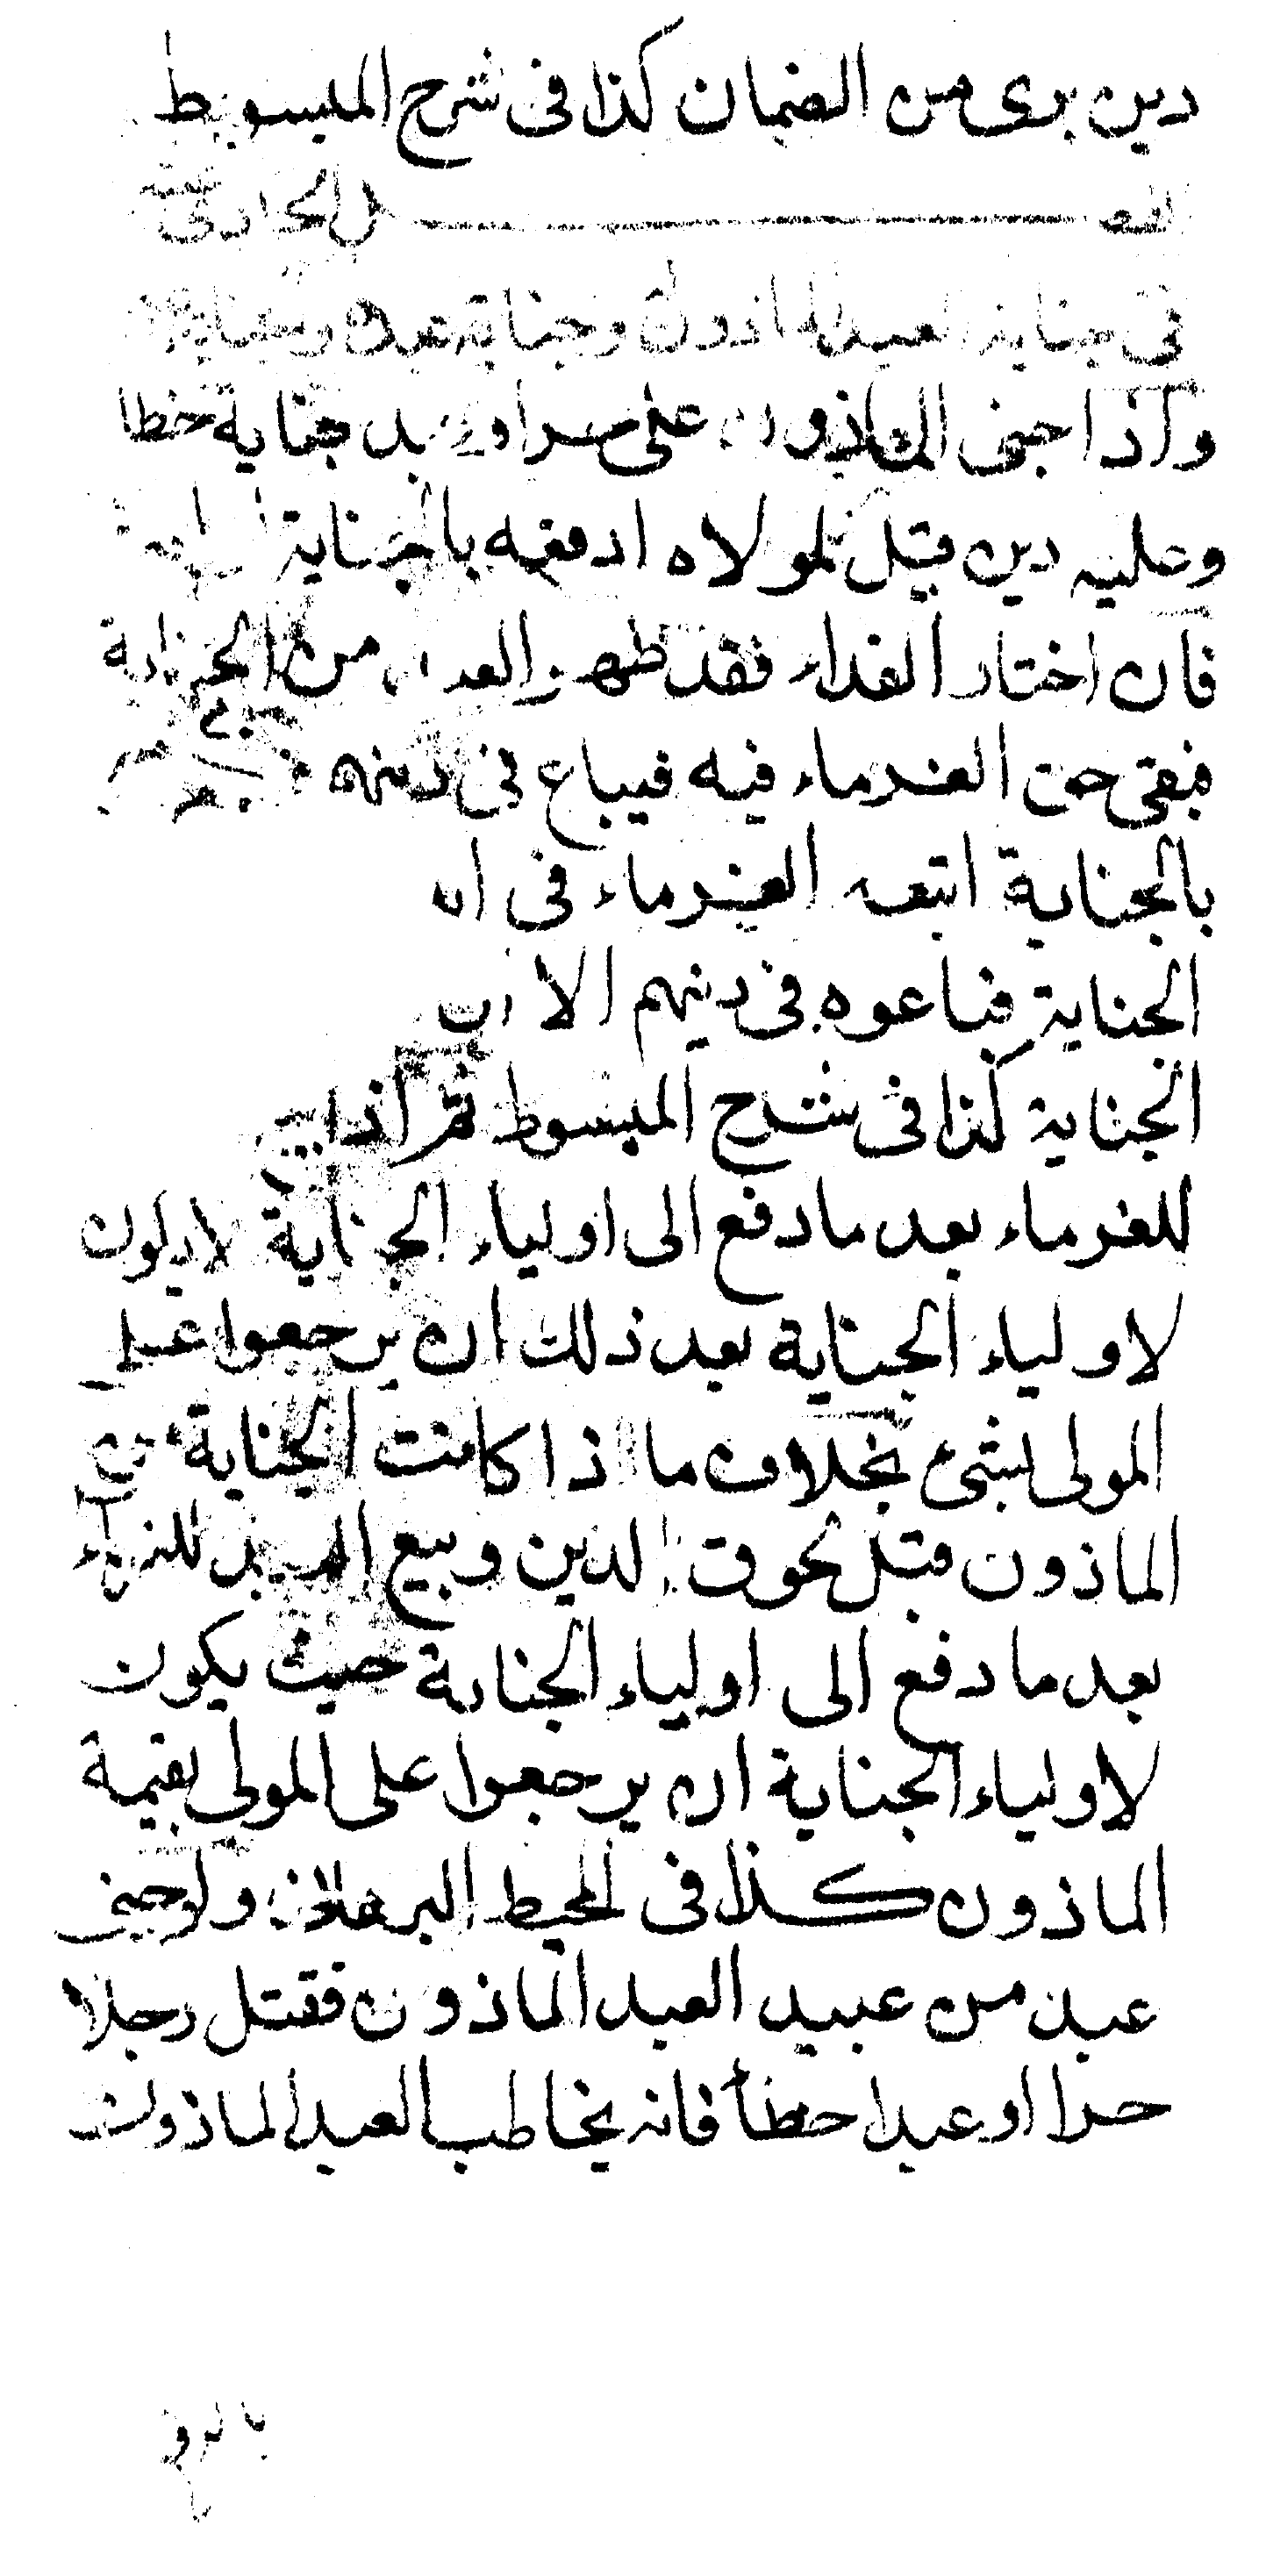 دين برى من الضمان كذا فى شرح المبسوط
الفصل الحادى
فى جناية العبد الماذون وجناية عبده
واذا جنى الماذون على حر او عبد جناية خطا
وعليه دين قيل لمولاه ادفعه بالجناية
فان اختار الفداء فقد طهر العبد من الجناية
فبقى حق الغرماء فيه فيباع فى دينهم
بالجناية اتبعه الغرماء فى
الجناية فباعوه فى دينهم الا ان
الجناية كذا فى شرح المبسوط ثم اذا
للغرماء بعد ما دفع الى اولياء الجناية لا يكون
لاولياء الجناية بعد ذلك ان يرجعوا على
المولى بشئ بخلاف ما اذا كانت الجناية من
الماذون قبل لحوق الدين وبيع العبد للغرماء
بعد ما دفع الى اولياء الجناية حيث يكون
لاولياء الجناية ان يرجعوا على المولى بقيمة
الماذون كذا فى المحيط البرهانى ولو جنى
عبد من عبيد العبد الماذون فقتل رجلا
حرا او عبدا خطأ فانه يخاطب العبد الماذون
بالدفع